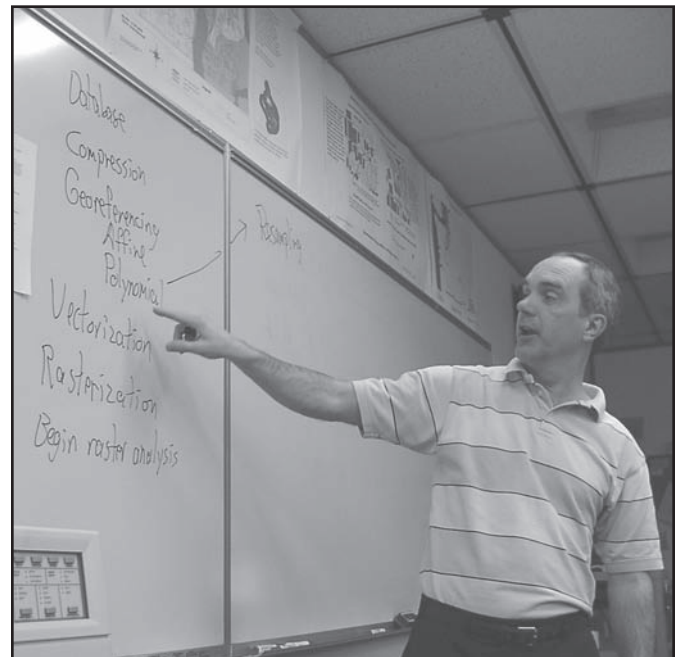 Database
Compression
Georeferencing
Affine
Polynomial
Resampling
Vectorization
Rasterization
Begin raster analysis